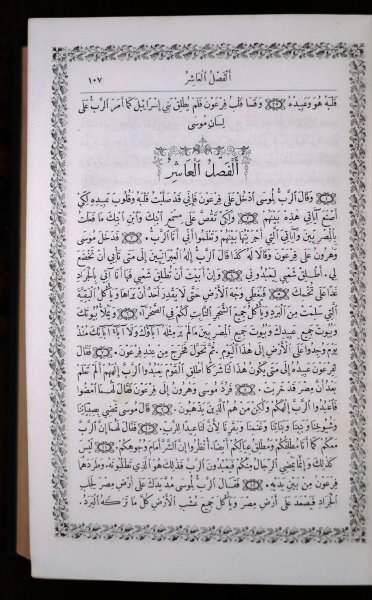 ١٠٧ الفصل العاشر
قلبه هو وعبيده وقسا قلب فرعون فلم يطلق بني إسرائيل كما أمر الرب على
لسان موسى
ألفصل العاشر
وقال الرب لموسى ادخل على فرعون فإني قد صلبت قلبه وقلوب عبيده لكي
أصنع آياتي هذه بينهم ولكي تقص على مسمع ابنك وابن ابنك ما فعلت
بالمصريين وآياتي التي أجريتها بينهم وتعلموا أني أنا الرب. فدخل موسى
وهرون على فرعون وقالا له كذا قال الرب إله العبرانيين إلى متى تأبى أن تخضع
لي. أطلق شعبي ليعبدوني وإن أبيت أن تطلق شعبي فها أنا آتي بالجراد
غدا على تخمك فيغطي وجه الأرض حتى لا يقدر أحد أن يراها ويأكل البقية
التي سلمت من البرد ويأكل جميع الشجر النابت لكم في الصحراء. ويملأ بيوتك
وبيوت جميع عبيدك وبيوت جميع المصريين مما لم ير مثله آباؤك ولا آباء آبائك منذ
يوم وجدوا على الأرض إلى هذا اليوم. ثم تحول فخرج من عند فرعون. فقال
لفرعون عبيده إلى متى يكون هذا لنا شركا أطلق القوم يعبدوا الرب إلههم ألم تعلم
بعد أن مصر قد خربت. فرد موسى وهرون إلى فرعون فقال لهما امضوا
فاعبدوا الرب إلهكم ولكن من هم الذين يذهبون. قال موسى نمضي بصبياننا
وشيوخنا وبنينا وبناتنا وغنمنا وبقرنا لأن لنا عيدا للرب. فقال لهما إن الرب
معكم كما أنا مطلقكم ومطلق عيالكم أيضا. أنظروا إن الشر أمام وجوهكم. ليس
كذلك وإنما يمضي الرجال منكم فيعبدون الرب فذلك هو الذي تطلبونه. وطردهما
فرعون من بين يديه. فقال الرب لموسى مد يدك على أرض مصر بجلب
الجراد فيصعد على أرض مصر ويأكل جميع عشب الأرض كل ما تركه البرد.